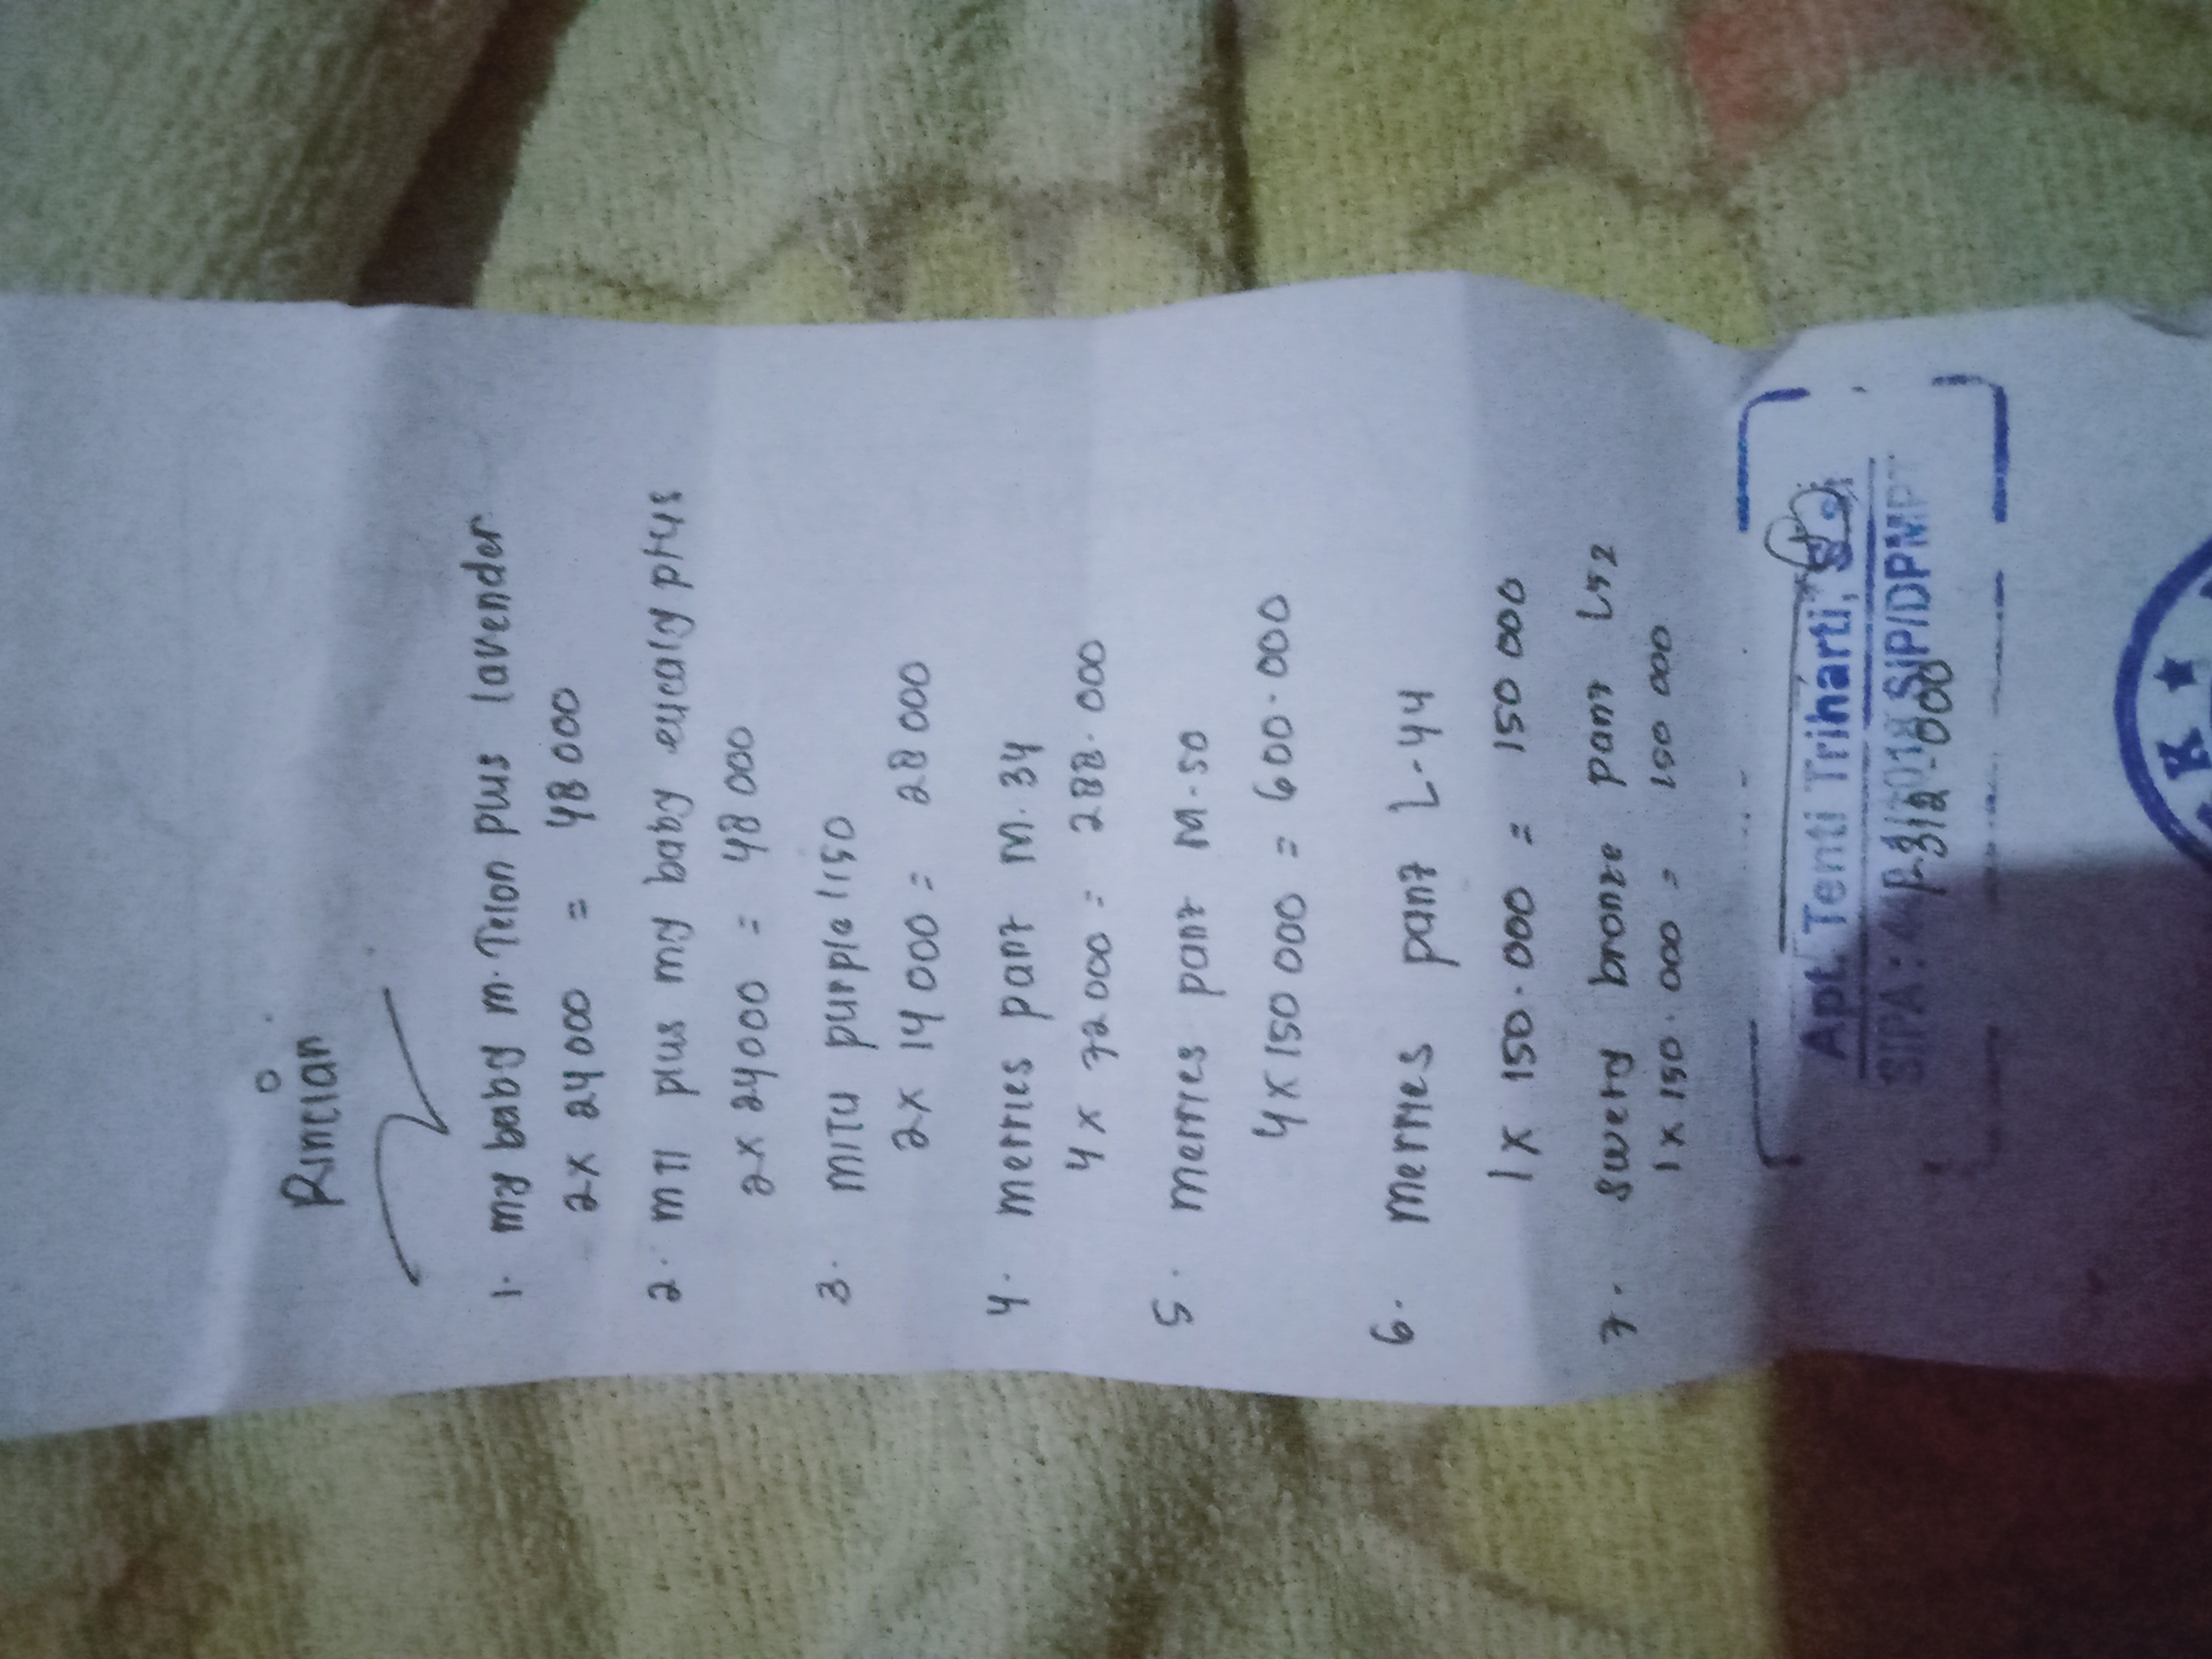 Rincian
1. my baby m.Telon plus lavender
2 x 24 000 = 48 000
2. mTl plus my baby eucalyptus
2 x 24000 = 48 000
3. mITu purple 1150
2 x 14 000 = 28 000
4. merries pant m.34
4 x 72 000 = 288.000
5. merries pant M-50
4 x 150 000 = 600.000
6. merries pant L-44
1 x 150.000 = 150 000
7. swety bronze pant L52
1 x 150.000 = 150 000
Apt. Tenti Triharti,
1.312.000
SIPA : SIP/DPMP
K ★